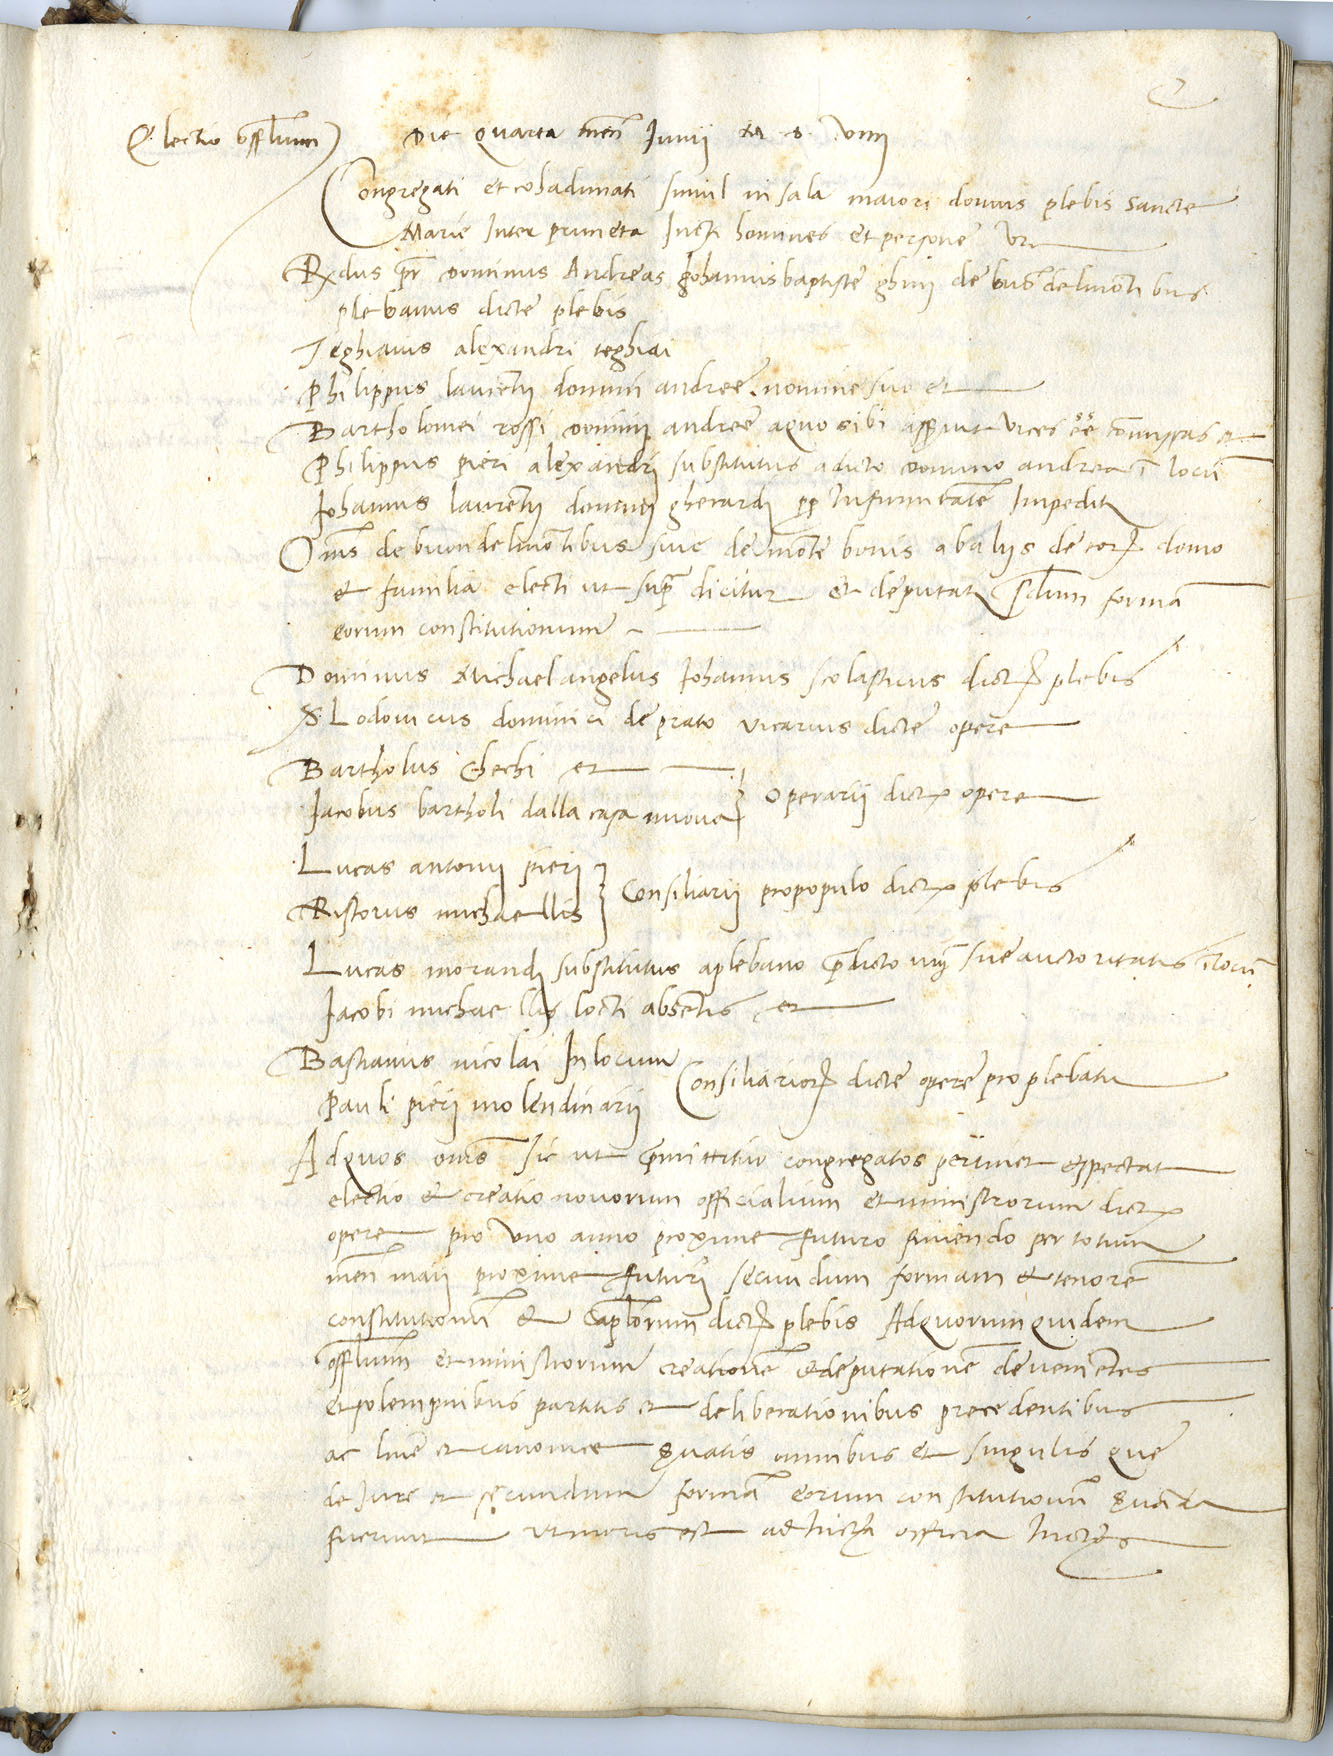 2
Electio offitium Die quarta mens Junij M D VIIII
Congregati et cohadunati simul in sala maiori domus plebis Sancte
Marie Inter pruneta Infrti homines et persone vz
Rdus pr dominus Andreas Johannisbaptiste ghini de buondelmontibus
plebanus dicte plebis
Teghiaius alexandri teghiai
Philippus laurentij domini andree nomine suo et
Bartholomei rossi domini andree a quo sibi asserunt vices eē commissas et
Philippus pieri alexandri substitutus a dicto domino andrea i locū
Johannis laurentij domini gherardi pp Infirmitatē Impediti
Omēs de buondelmōtibus sive de mōte bonis abalijs de eorū domo
et familia electi ut supra dicitur et deputati scdum formā
eorum constitutionum
Dominus Michaelangelus Johannis scolasticus dicte plebis
S Lodovicus dominici de prato vicarius dicte opere
Bartholus Chechi et
Jacobus bartholi dalla casa nuova Operarij dicte opere
Lucas antonij pieri
Ristorus michaellis Consiliarij pro populo dicte plebis
Lucas morandi substitutus a plebano pdicto vig sue auctoritatis i locū
Jacobi michaellis locti absentis et
Bastianus nicolai In locum
Pauli pieri molendinarij Consiliariorū dicte opere pro plebatu
Ad quos omēs sic ut pmittitur congregatos pertinet et spectat
electio et creatio novorum officialium et ministrorum dicte
opere pro uno anno proxime futuro finiendo per totum
mens maij proxime futuri secundum formam et tenorē
constitutionū et caplorum dicte plebis Ad quorum quidem
offitium et ministrorum creationē et deputationē devenientes
et solempnibus partitis et deliberationibus precedentibus
ac lnie et canonice servatis omnibus et singulis que
de Jure et secundum formā eorum constitutionū servanda
fuerunt ut moris est ad Infrta officia Infrtos